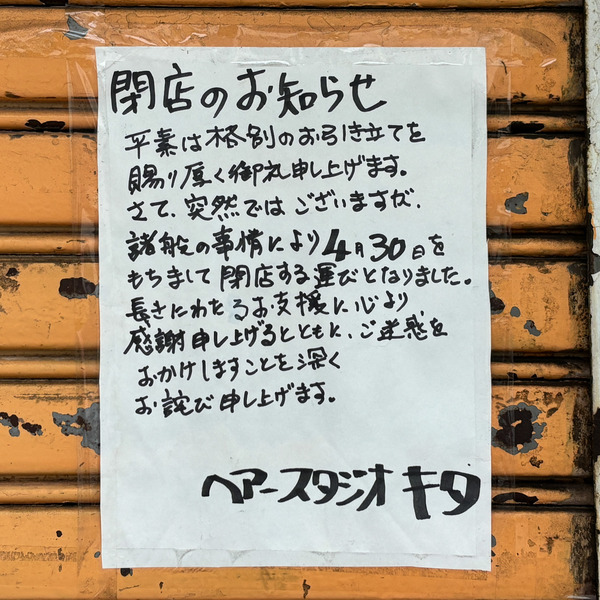 閉店のお知らせ
平素は格別のお引き立てを
賜り厚く御礼申し上げます。
さて、突然ではございますが、
諸般の事情により4月30日を
もちまして閉店する運びとなりました。
長きにわたるお支援に心より
感謝申し上げるとともに、ご迷惑を
おかけしますことを深く
お詫び申し上げます。
ヘアースタジオ キタ